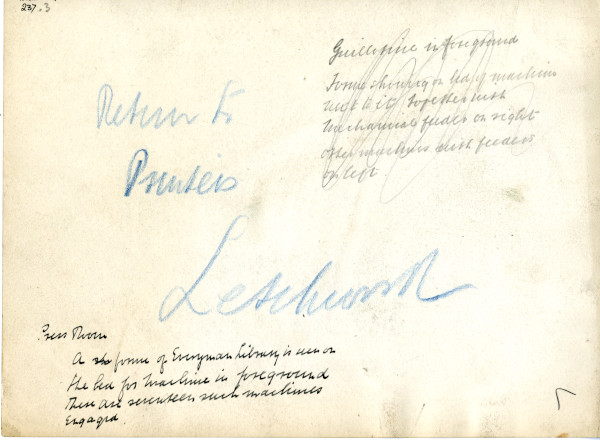 237.3
Guillotine in foreground
Forme showing on bed of machine
next to it together with
mechanical feeder on right
other machines with feeders
on left.
Return to
Printers
Letchworth
Press Room
A forme of Everyman Library is seen on
the bed for machine in foreground
There are seventeen such machines
Engaged.